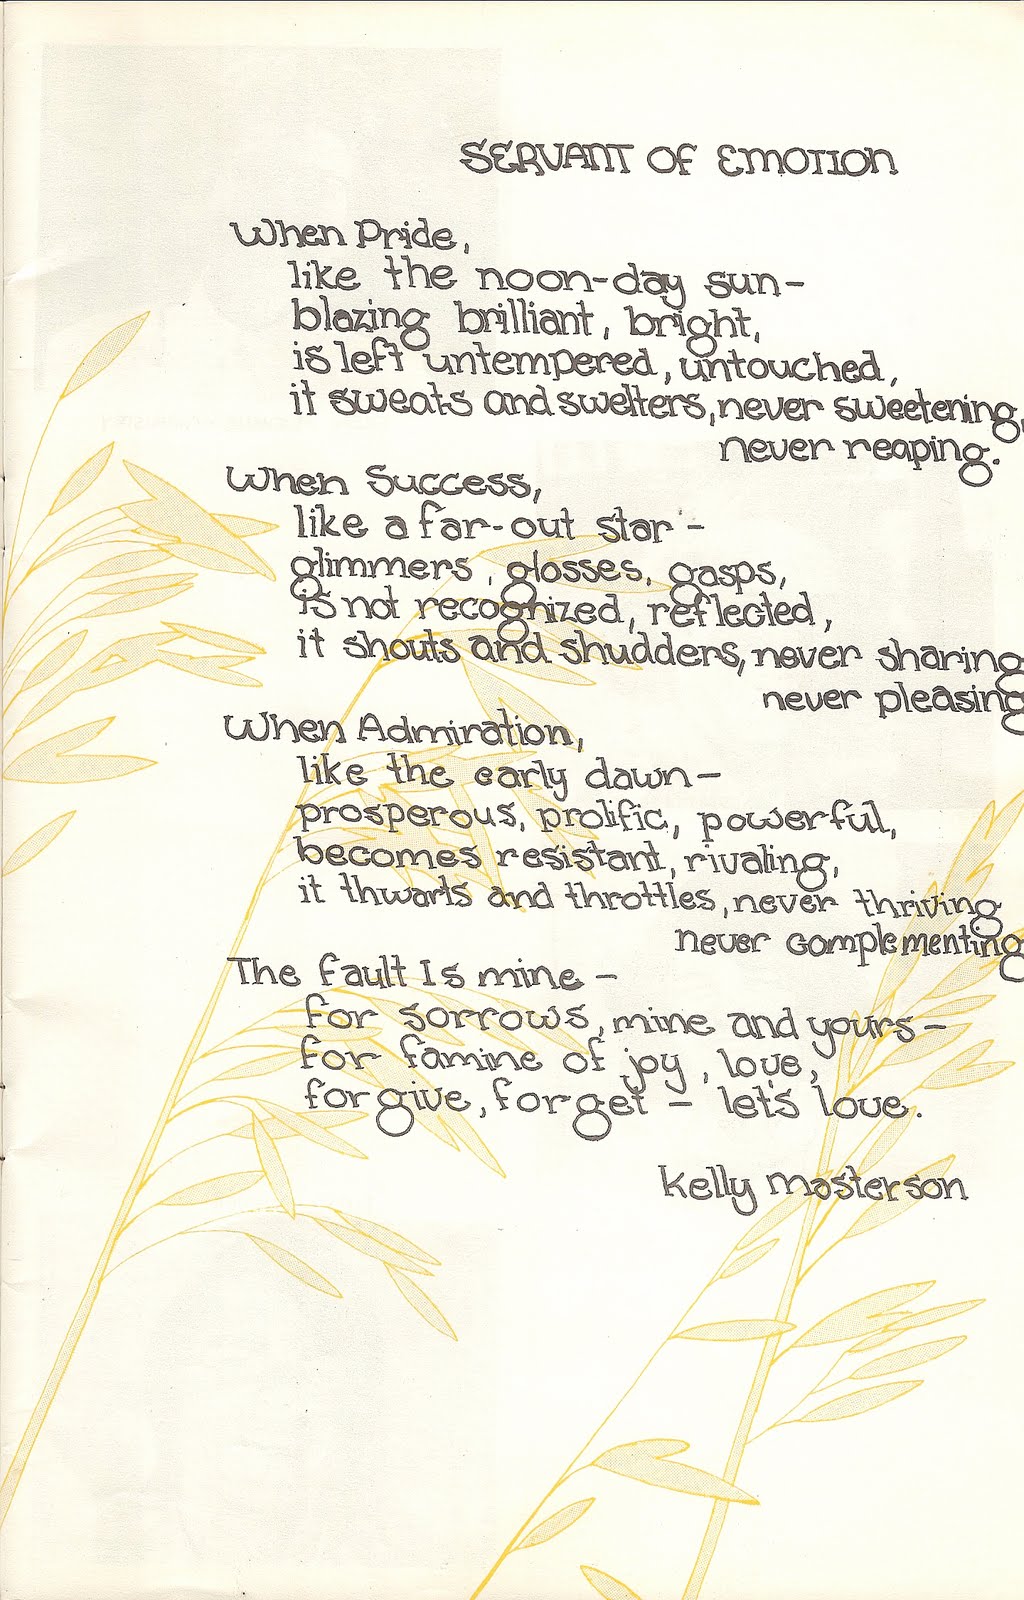 SERVANT OF EMOTION
When Pride,
like the noon-day sun-
blazing brilliant, bright,
is left untempered, untouched,
it sweats and swelters, never sweetening,
never reaping.
When Success,
like a far-out star-
glimmers, glosses, gasps,
is not recognized, reflected,
it shouts and shudders, never sharing
never pleasing
When Admiration,
like the early dawn-
prosperous, prolific, powerful,
becomes resistant, rivaling,
it thwarts and throttles, never thriving
never complementing
The fault Is mine -
for sorrows, mine and yours-
for famine of joy, love,
forgive, forget - let's love.
Kelly Masterson